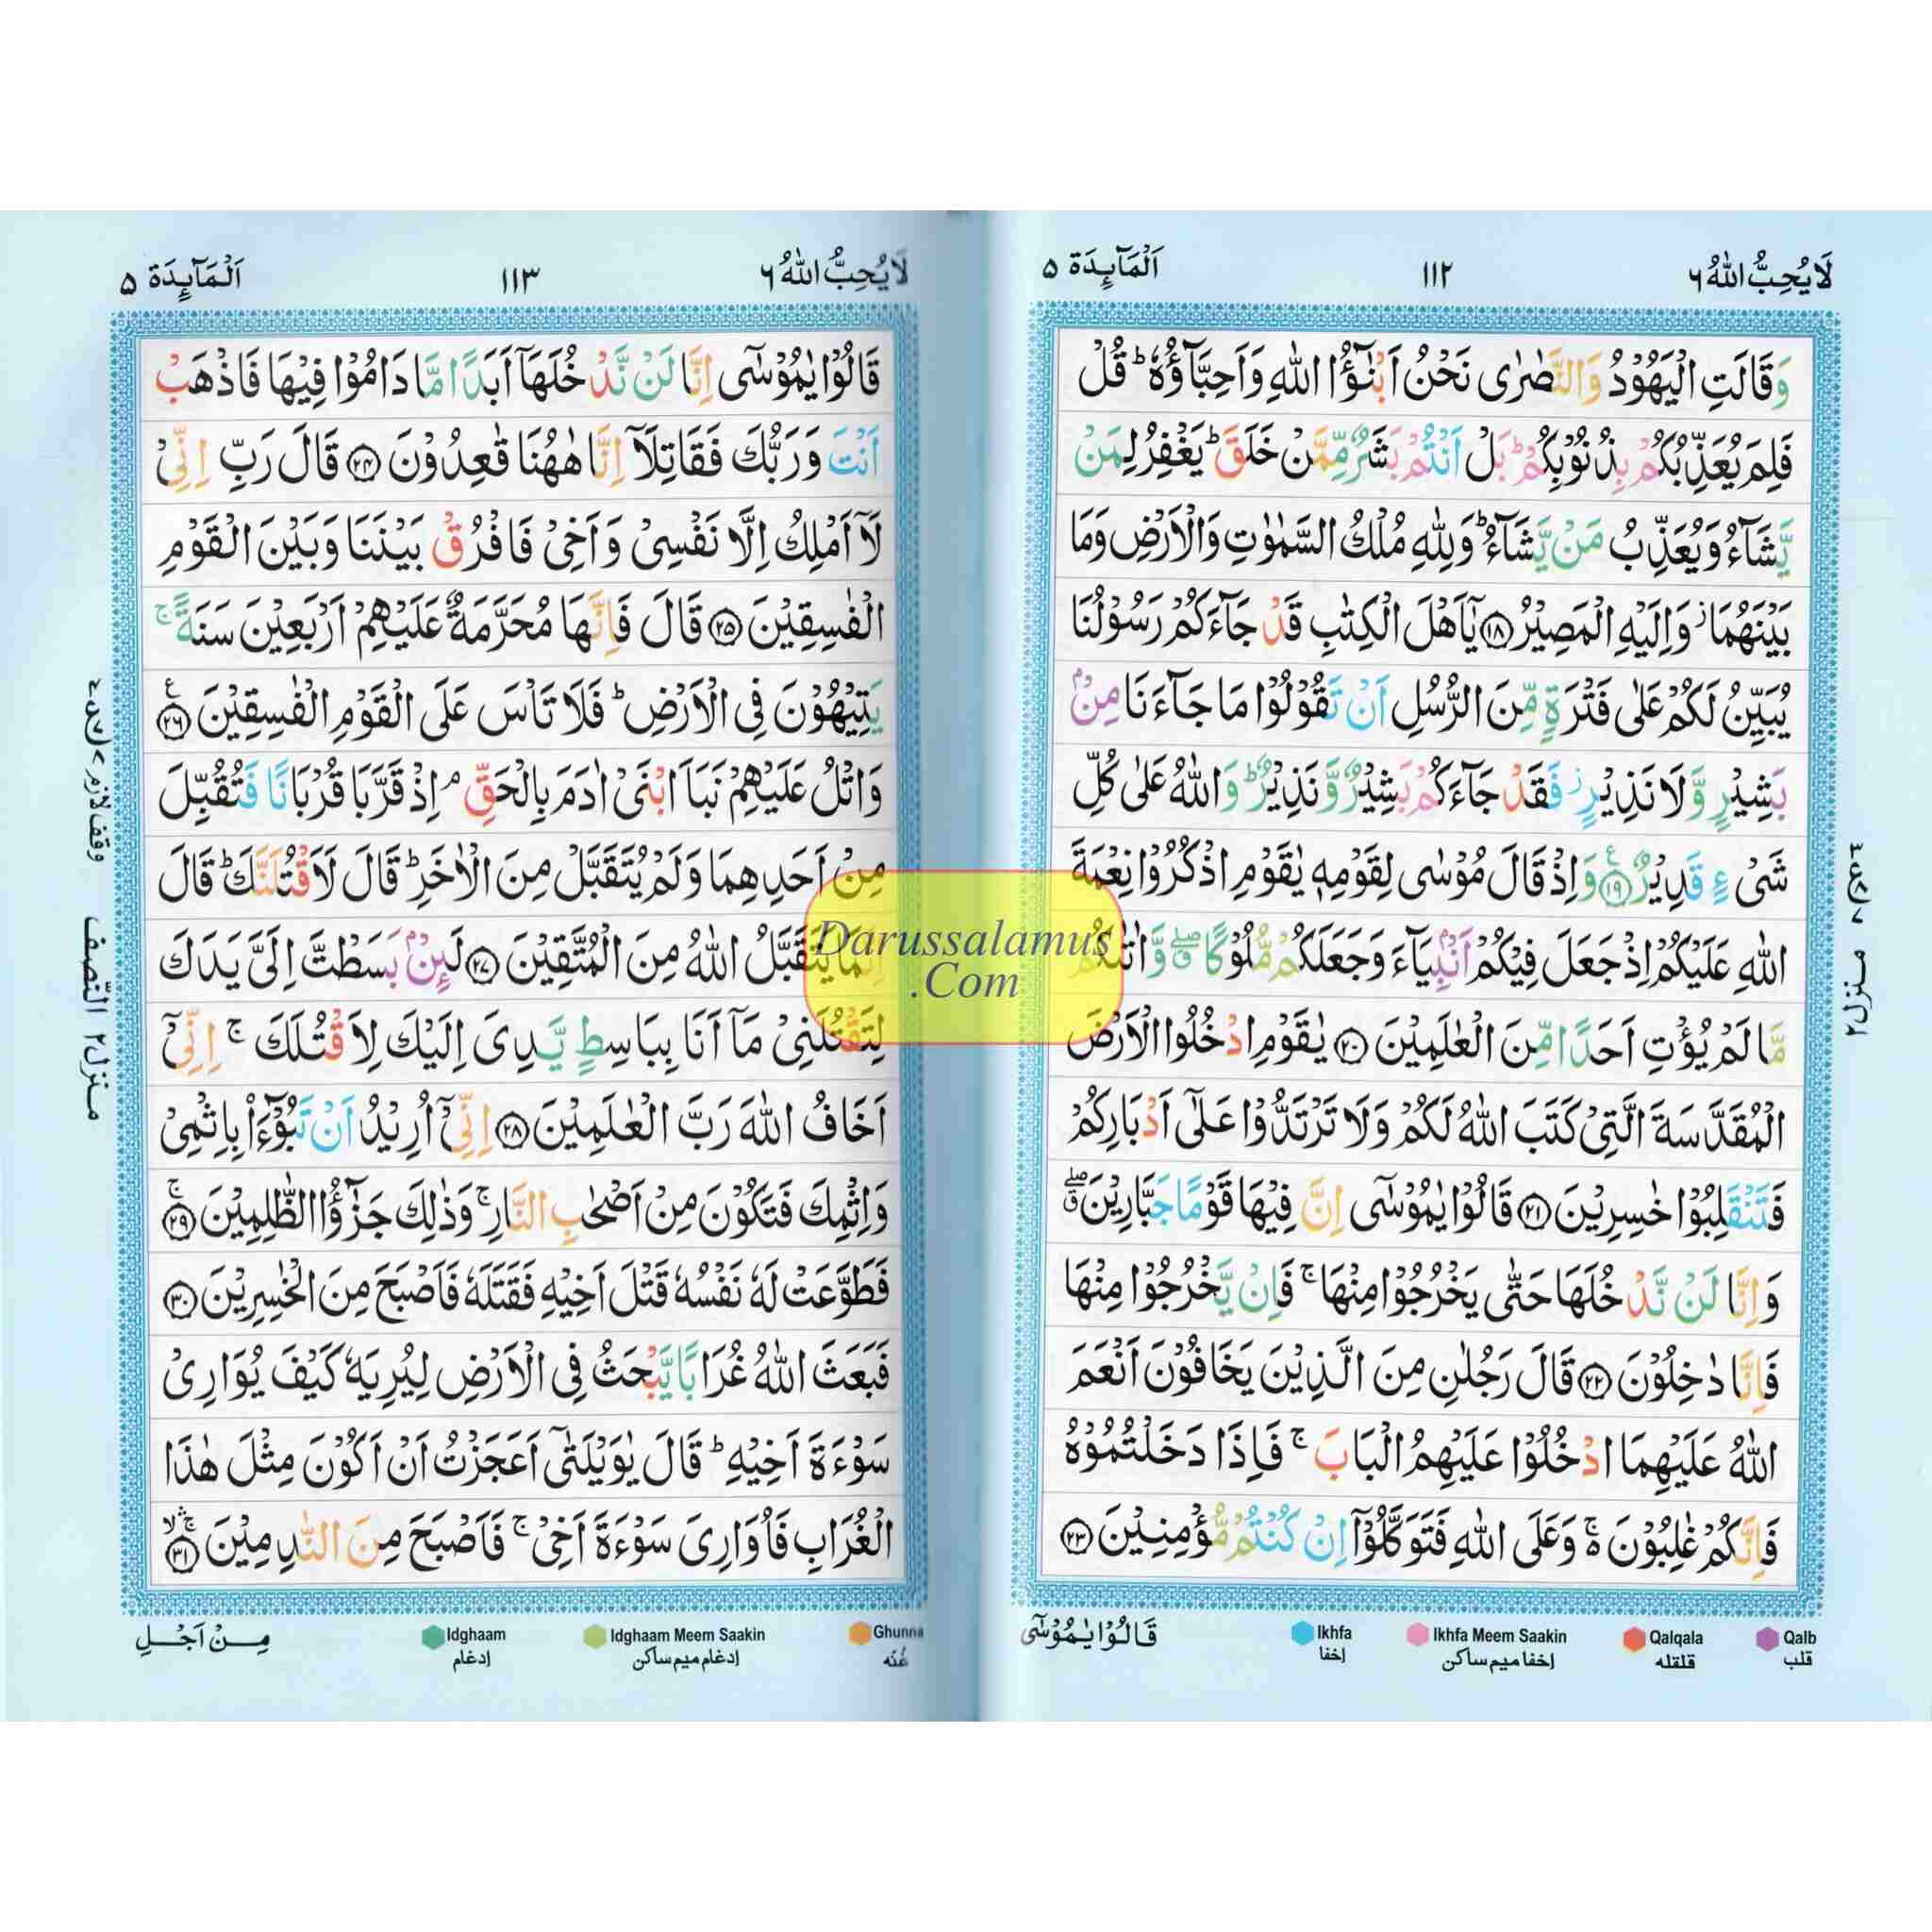 لَا يُحِبُّ اللّٰهُ ٦
١١٢
اَلْمَآئِدَة ٥
وَقَالَتِ الْيَهُوْدُ وَالنَّصٰرٰى نَحْنُ اَبْنٰٓؤُا اللّٰهِ وَاَحِبَّآؤُهٗ ؕ قُلْ
فَلِمَ يُعَذِّبُكُمْ بِذُنُوْبِكُمْ ؕ بَلْ اَنْتُمْ بَشَرٌ مِّمَّنْ خَلَقَ ؕ يَغْفِرُ لِمَنْ
يَّشَآءُ وَيُعَذِّبُ مَنْ يَّشَآءُ ؕ وَلِلّٰهِ مُلْكُ السَّمٰوٰتِ وَالْاَرْضِ وَمَا
بَيْنَهُمَا ز وَاِلَيْهِ الْمَصِيْرُ ١٨ يٰۤاَهْلَ الْكِتٰبِ قَدْ جَآءَكُمْ رَسُوْلُنَا
يُبَيِّنُ لَكُمْ عَلٰى فَتْرَةٍ مِّنَ الرُّسُلِ اَنْ تَقُوْلُوْا مَا جَآءَنَا مِنْۢ
بَشِيْرٍ وَّلَا نَذِيْرٍ ز فَقَدْ جَآءَكُمْ بَشِيْرٌ وَّنَذِيْرٌ ؕ وَاللّٰهُ عَلٰى كُلِّ
شَىْءٍ قَدِيْرٌ ١٩ ع وَاِذْ قَالَ مُوْسٰى لِقَوْمِهٖ يٰقَوْمِ اذْكُرُوْا نِعْمَةَ
اللّٰهِ عَلَيْكُمْ اِذْ جَعَلَ فِيْكُمْ اَنْۢبِيَآءَ وَجَعَلَكُمْ مُّلُوْكًا ۖق وَّاٰتٰىكُمْ
مَّا لَمْ يُؤْتِ اَحَدًا مِّنَ الْعٰلَمِيْنَ ٢٠ يٰقَوْمِ ادْخُلُوا الْاَرْضَ
الْمُقَدَّسَةَ الَّتِىْ كَتَبَ اللّٰهُ لَكُمْ وَلَا تَرْتَدُّوْا عَلٰٓى اَدْبَارِكُمْ
فَتَنْقَلِبُوْا خٰسِرِيْنَ ٢١ قَالُوْا يٰمُوْسٰٓى اِنَّ فِيْهَا قَوْمًا جَبَّارِيْنَ ۖق
وَاِنَّا لَنْ نَّدْخُلَهَا حَتّٰى يَخْرُجُوْا مِنْهَا ۚ فَاِنْ يَّخْرُجُوْا مِنْهَا
فَاِنَّا دٰخِلُوْنَ ٢٢ قَالَ رَجُلٰنِ مِنَ الَّذِيْنَ يَخَافُوْنَ اَنْعَمَ
اللّٰهُ عَلَيْهِمَا ادْخُلُوْا عَلَيْهِمُ الْبَابَ ۚ فَاِذَا دَخَلْتُمُوْهُ
فَاِنَّكُمْ غٰلِبُوْنَ ۚ۬ وَعَلَى اللّٰهِ فَتَوَكَّلُوْٓا اِنْ كُنْتُمْ مُّؤْمِنِيْنَ ٢٣
منزل ٢
Qalb قلب
Qalqala قلقله
Ikhfa Meem Saakin إخفا ميم ساكن
Ikhfa إخفا
قَالُوْا يٰمُوْسٰٓى
لَا يُحِبُّ اللّٰهُ ٦
١١٣
اَلْمَآئِدَة ٥
قَالُوْا يٰمُوْسٰٓى اِنَّا لَنْ نَّدْخُلَهَاۤ اَبَدًا مَّا دَامُوْا فِيْهَا فَاذْهَبْ
اَنْتَ وَرَبُّكَ فَقَاتِلَاۤ اِنَّا هٰهُنَا قٰعِدُوْنَ ٢٤ قَالَ رَبِّ اِنِّىْ
لَاۤ اَمْلِكُ اِلَّا نَفْسِىْ وَاَخِىْ فَافْرُقْ بَيْنَنَا وَبَيْنَ الْقَوْمِ
الْفٰسِقِيْنَ ٢٥ قَالَ فَاِنَّهَا مُحَرَّمَةٌ عَلَيْهِمْ اَرْبَعِيْنَ سَنَةً ۚ
يَتِيْهُوْنَ فِى الْاَرْضِ ؕ فَلَا تَاْسَ عَلَى الْقَوْمِ الْفٰسِقِيْنَ ٢٦ ع
وَاتْلُ عَلَيْهِمْ نَبَاَ ابْنَىْ اٰدَمَ بِالْحَقِّ ۘ اِذْ قَرَّبَا قُرْبَانًا فَتُقُبِّلَ
مِنْ اَحَدِهِمَا وَلَمْ يُتَقَبَّلْ مِنَ الْاٰخَرِ ؕ قَالَ لَاَقْتُلَنَّكَ ؕ قَالَ
اِنَّمَا يَتَقَبَّلُ اللّٰهُ مِنَ الْمُتَّقِيْنَ ٢٧ لَئِنْۢ بَسَطْتَّ اِلَىَّ يَدَكَ
لِتَقْتُلَنِىْ مَاۤ اَنَا بِبَاسِطٍ يَّدِىَ اِلَيْكَ لِاَقْتُلَكَ ۚ اِنِّىْٓ
اَخَافُ اللّٰهَ رَبَّ الْعٰلَمِيْنَ ٢٨ اِنِّىْٓ اُرِيْدُ اَنْ تَبُوْٓءَاۡ بِاِثْمِىْ
وَاِثْمِكَ فَتَكُوْنَ مِنْ اَصْحٰبِ النَّارِ ۚ وَذٰلِكَ جَزٰٓؤُا الظّٰلِمِيْنَ ۚ ٢٩
فَطَوَّعَتْ لَهٗ نَفْسُهٗ قَتْلَ اَخِيْهِ فَقَتَلَهٗ فَاَصْبَحَ مِنَ الْخٰسِرِيْنَ ٣٠
فَبَعَثَ اللّٰهُ غُرَابًا يَّبْحَثُ فِى الْاَرْضِ لِيُرِيَهٗ كَيْفَ يُوَارِىْ
سَوْءَةَ اَخِيْهِ ؕ قَالَ يٰوَيْلَتٰٓى اَعَجَزْتُ اَنْ اَكُوْنَ مِثْلَ هٰذَا
الْغُرَابِ فَاُوَارِىَ سَوْءَةَ اَخِىْ ۚ فَاَصْبَحَ مِنَ النّٰدِمِيْنَ ٣١
وقف لازم
النّصف
منزل ٢
Ghunna غنه
Idghaam Meem Saakin إدغام ميم ساكن
Idghaam إدغام
مِنْ اَجْلِ
Darussalamus
.Com